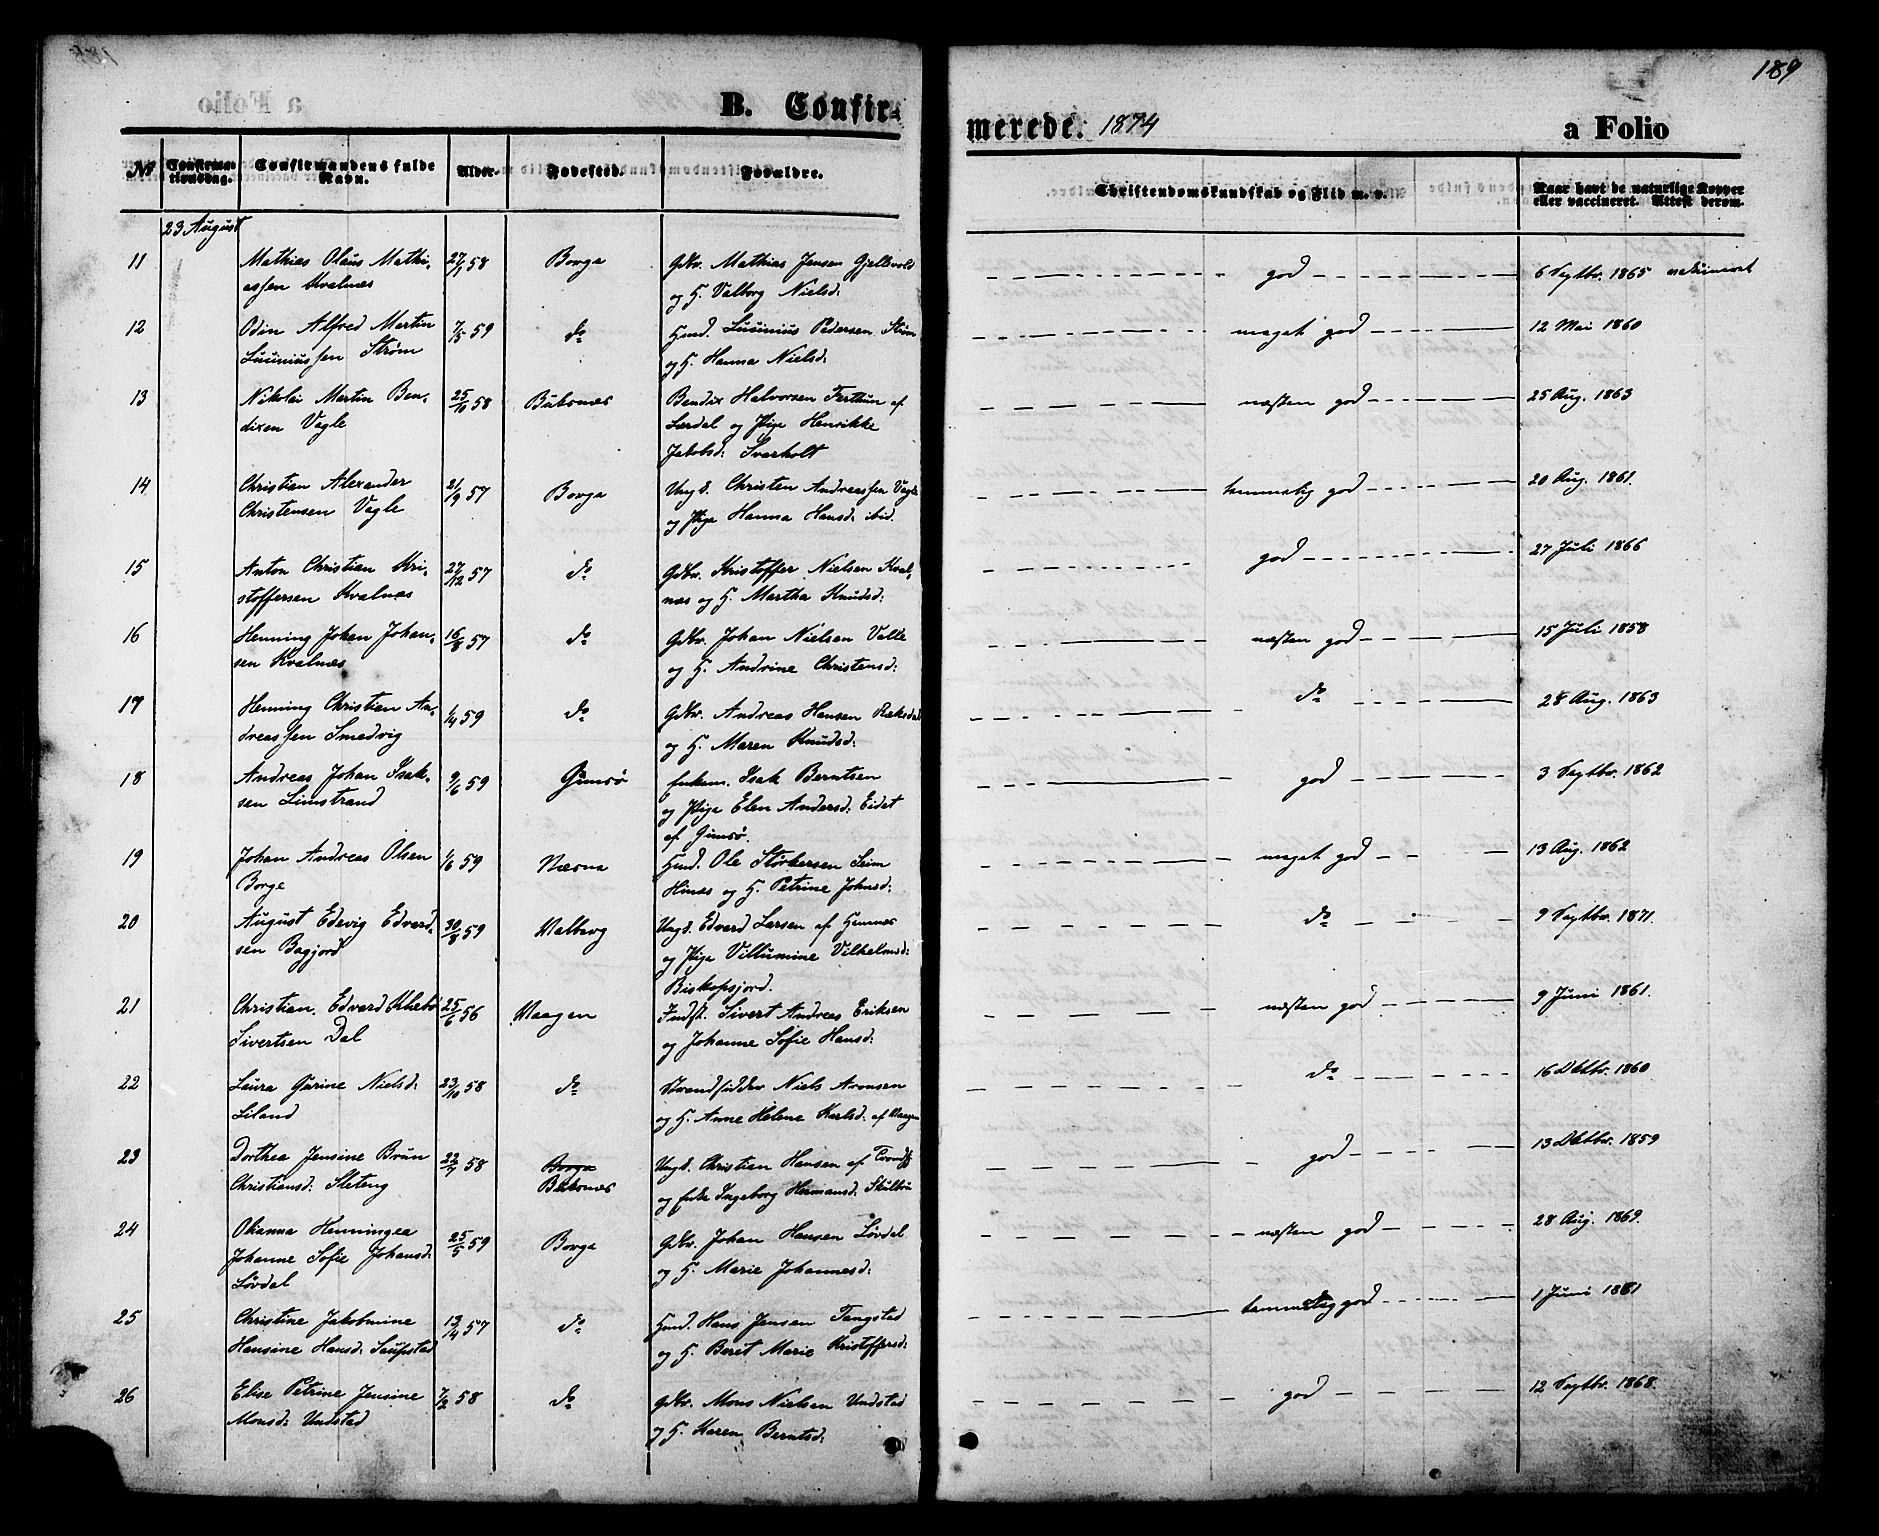 189
B. Confir-
merede. 1874
a Folio
№ Confirma-tionsdag. Confirmandens fulde Navn. Alder. Fødested. Forældre. Christendomskundskab og Flid m. v. Naar havt de naturlige Kopper eller vaccineret. Attest derom.
23 August
11 Mathias Olaus Mathi- 27/1 58 Borge Gdbr. Mathias Jensen Gjellevold god 6 Septbr. 1865
assen Kvalnæs og H. Valborg Nielsd:
12 Odin Alfred Martin 7/3 59 do Huusd. Lucinius Pedersen Strøm meget god 12 Mai 1860
Luciniussen Strøm og H. Hanna Nielsd:
13 Nikolai Martin Ben- 25/10 58 Buksnæs Bendix Halvorsen Ferthun af næsten god 25 Aug. 1863
dixen Vagle Lærdal og Pige Henrikke
Jakobsd: Sverholt
14 Christian Alexander 21/9 57 Borge Ungk. Christen Andreassen Vagle temmelig god 20 Aug. 1861.
Christensen Vagle og Pige Hanna Hansd: ibid.
15 Anton Christian Kri- 27/12 57 do Gdbr. Kristoffer Nielsen Kval- god 27 Juli 1866
stoffersen Kvalnæs næs og H. Martha Knudsd:
16 Henning Johan Johan- 16/8 57 do Gdbr. Johan Nielsen Valle næsten god 15 Juli 1858
sen Kvalnæs og H. Andrine Christensd:
17 Henning Christian An- 1/4 59 do Gdbr. Andreas Hansen Ræksdal do 28 Aug. 1863
dreassen Smedvig og H. Maren Knudsd:
18 Andreas Johan Isak- 9/6 59 Gimsø Enkem. Isak Berntsen god 3 Septbr. 1862
sen Limstrand og Pige Elen Andersd: Eidet
af Gimsø.
19 Johan Andreas Olsen 1/6 59 Næsna Huusd. Ole Størkersen meget god 13 Aug. 1862
Borge og H. Petrine Johnsd:
20 August Edevig Edvard- 30/8 59 Valberg Ungk. Edvard Larsen af Hennes do 9 Septbr. 1871.
sen Bøgjord og Pige Villumine Vilhelmsd:
Biskopsjord.
21 Christian Edvard 25/6 56 Vaagen Indst. Sivert Andreas Eriksen næsten god 9 Juni 1861.
Sivertsen Dal og Johanne Sofie Hansd:
22 Laura Gurine Nielsd: 23/10 58 do Strandsidder Niels Aronsen do 16 Oktbr. 1860
Liland og H. Anne Helene Karlsd: af Vaagen
23 Dorthea Jensine Brun 58 Borge Ungk. Christian Hansen af god 13 Oktbr. 1859
Christiansd: Steteng Buksnæs og Enke Ingeborg Hermansd: Skulbru
24 Okianna Henningea 25/5 59 Borge Gdbr. Johan Hansen Løvdal næsten god 28 Aug. 1869.
Johanne Sofie Johansd: og H. Marie Johannesd:
Løvdal
25 Christine Jakobmine 13/4 57 do Huusd. Hans Jensen Tangstad temmelig god 1 Juni 1861
Hansine Hansd: Saupstad og H. Beret Marie Kristoffersd:
26 Elise Petrine Jensine 7/2 58 do Gdbr. Mons Nielsen Undstad god 12 Septbr. 1868.
Monsd: Undstad og H. Karen Berntsd: